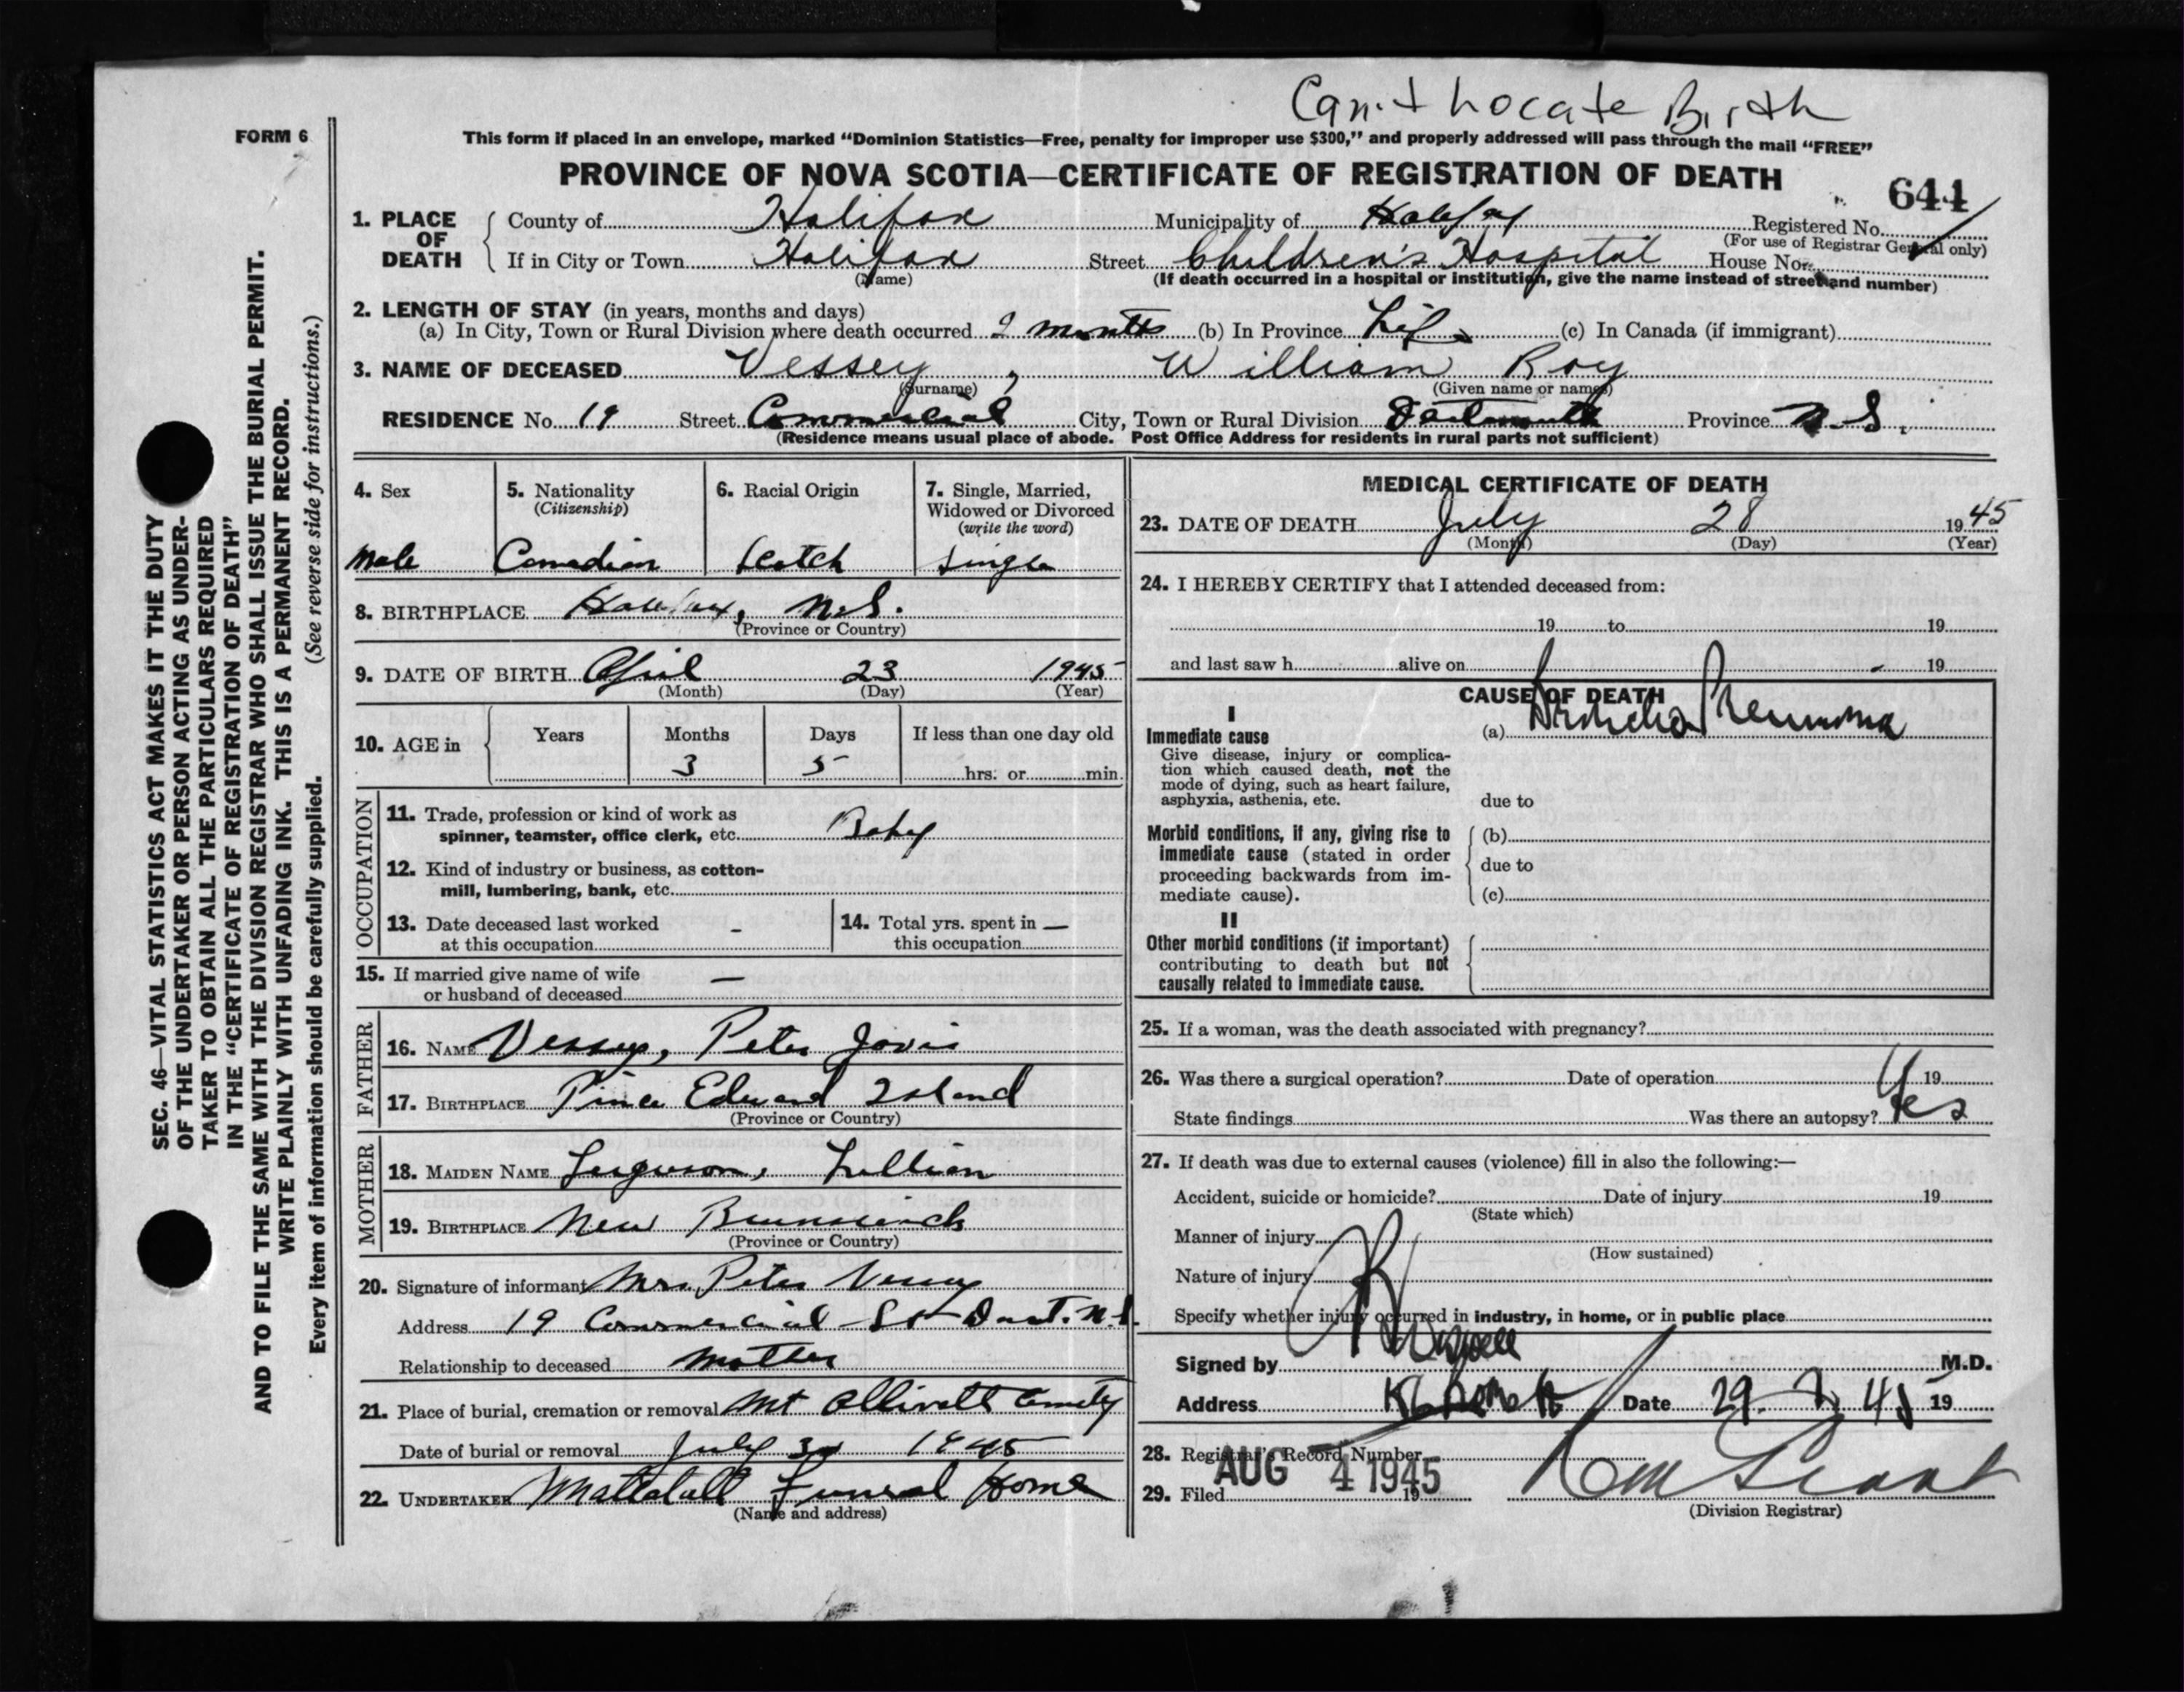 Can't Locate Birth
FORM 6
This form if placed in an envelope, marked “Dominion Statistics—Free, penalty for improper use $300,” and properly addressed will pass through the mail “FREE”
PROVINCE OF NOVA SCOTIA—CERTIFICATE OF REGISTRATION OF DEATH
644
1. PLACE OF DEATH
County of Halifax Municipality of Halifax Registered No.
(For use of Registrar General only)
If in City or Town Halifax Street Children's Hospital House No.
(Name) (If death occurred in a hospital or institution, give the name instead of street and number)
2. LENGTH OF STAY (in years, months and days)
(a) In City, Town or Rural Division where death occurred 2 months (b) In Province Life (c) In Canada (if immigrant)
3. NAME OF DECEASED Vessey, William Roy
(Surname) (Given name or names)
RESIDENCE No. 19 Street Commercial City, Town or Rural Division Dartmouth Province N.S.
(Residence means usual place of abode. Post Office Address for residents in rural parts not sufficient)
4. Sex 5. Nationality 6. Racial Origin 7. Single, Married,
(Citizenship) Widowed or Divorced
(write the word)
Male Canadian Scotch Single
8. BIRTHPLACE Halifax, N.S.
(Province or Country)
9. DATE OF BIRTH April 23 1945
(Month) (Day) (Year)
10. AGE in Years Months Days If less than one day old
3 5 hrs. or min.
OCCUPATION
11. Trade, profession or kind of work as
spinner, teamster, office clerk, etc. Baby
12. Kind of industry or business, as cotton-
mill, lumbering, bank, etc.
13. Date deceased last worked - 14. Total yrs. spent in —
at this occupation this occupation
15. If married give name of wife —
or husband of deceased
FATHER
16. NAME Vessey, Peter
17. BIRTHPLACE Prince Edward Island
(Province or Country)
MOTHER
18. MAIDEN NAME Ferguson, Lillian
19. BIRTHPLACE New Brunswick
(Province or Country)
20. Signature of informant Mrs. Peter Vessey
Address 19 Commercial St Dart. N.S.
Relationship to deceased Mother
21. Place of burial, cremation or removal Mt Ollivett Cemety
Date of burial or removal July 30 1945
22. UNDERTAKER Mattatall Funeral Home
(Name and address)
MEDICAL CERTIFICATE OF DEATH
23. DATE OF DEATH July 28 1945
(Month) (Day) (Year)
24. I HEREBY CERTIFY that I attended deceased from:
19 to 19
and last saw h alive on 19
CAUSE OF DEATH
I
Immediate cause (a) Broncho Pneumonia
Give disease, injury or complica-
tion which caused death, not the
mode of dying, such as heart failure,
asphyxia, asthenia, etc. due to
Morbid conditions, if any, giving rise to (b)
immediate cause (stated in order due to
proceeding backwards from im-
mediate cause). (c)
II
Other morbid conditions (if important)
contributing to death but not
causally related to immediate cause.
25. If a woman, was the death associated with pregnancy?
26. Was there a surgical operation? Date of operation 19
State findings Was there an autopsy? Yes
27. If death was due to external causes (violence) fill in also the following:—
Accident, suicide or homicide? Date of injury 19
(State which)
Manner of injury
(How sustained)
Nature of injury
Specify whether injury occurred in industry, in home, or in public place
Signed by M.D.
Address Date 29. 7 45 19
28. Registrar's Record Number
29. Filed AUG 4 1945 19
(Division Registrar)
SEC. 46—VITAL STATISTICS ACT MAKES IT THE DUTY
OF THE UNDERTAKER OR PERSON ACTING AS UNDER-
TAKER TO OBTAIN ALL THE PARTICULARS REQUIRED
IN THE “CERTIFICATE OF REGISTRATION OF DEATH”
AND TO FILE THE SAME WITH THE DIVISION REGISTRAR WHO SHALL ISSUE THE BURIAL PERMIT.
WRITE PLAINLY WITH UNFADING INK. THIS IS A PERMANENT RECORD.
Every item of information should be carefully supplied. (See reverse side for instructions.)